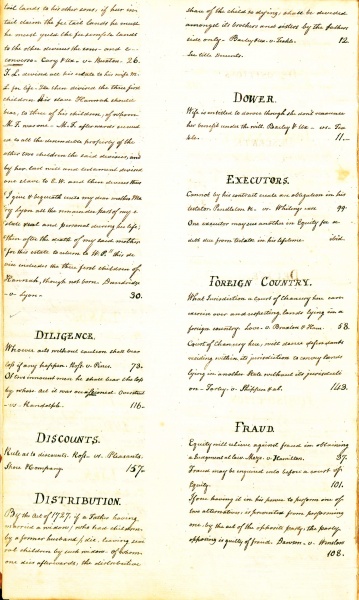 tail lands to his other sons, if her in-
tail claim the fee tail lands he must
be must yield the fee simple lands
to the other devisees the sons - and e-
converso. Cary &Ux - v - Buxton. 26.
T. L. devised all his estate to his wife M.
L. for life. She then devised the three first
children his slave Hannah should
bear, to three of his children, of whom
M. T. was one. M. T. afterwards
to all the descendible property of the
other two children the said devisees, and
by her last will and testament devised
one slave to E. W. and then devises thus
I give & bequeath unto my dear mother Ma-
ry Lyon all the remainder part of my e-
state real and personal during her life;
then after the death of my said mother
for this estate to return to W. P." this de-
vise includes the three first children of
Hannah, though not born. Dandridge
- v - Lyon - 30.
DILIGENCE.
Whoever acts without caution shall bear
loss if any happen. Ross - v - Pines. 73.
Of two innocent men he shall bear the loss
by whose act it was occasioned. Overstreet
- vs - Randolph. 116 -
DISCOUNTS.
Rule as to discounts. Ross - vs. Pleasants.
Shore & Company. 157 -
DISTRIBUTION.
By the Act of 1727, if a Father having
married a widow (who had children
by a former husband) die, leaving seve-
ral children by such widow, of whom
one dies afterwards, the distributive
share of the child so dying, shall be divided
amongst its brothers and sisters by the fathers
side only - Bailey &Ux - v - Teakle. 12.
See title Descents.
DOWER.
Wife is entitled to dower though she don't renounce
her benefit under the will. Bailey & Ux - vs - Tea-
kle. 11 -
EXECUTORS.
Cannot by his contract create an obligation in his
testator. Pendleton &c - v - Whiting &ux 99 -
One executor may sue another in Equity for a
debt due from testate in his lifetime. ibid.
FOREIGN COUNTRY.
What Jurisdiction a Court of Chancery here can
exercise over and respecting lands lying in a
foreign country. Love - v - Braxton & Hunt. 58.
Court of Chancery here, will decree defendants
residing within its jurisdiction to convey lands
lying in another State without its jurisdicti-
on - Farley - v - Shippen & al. 143.
FRAUD.
Equity will relieve against fraud in obtaining
a Judgment at law. Maze - v - Hamilton. 37 -
Fraud may be enquired into before a court of
Equity. 101.
If one having it in his power to perform one of
two alternatives, is prevented from performing
one, by the act of the opposite party, the party
opposing is guilty of fraud. Dawson - v - Winslow
108 -